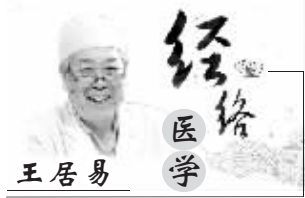 经络
医学
王居易